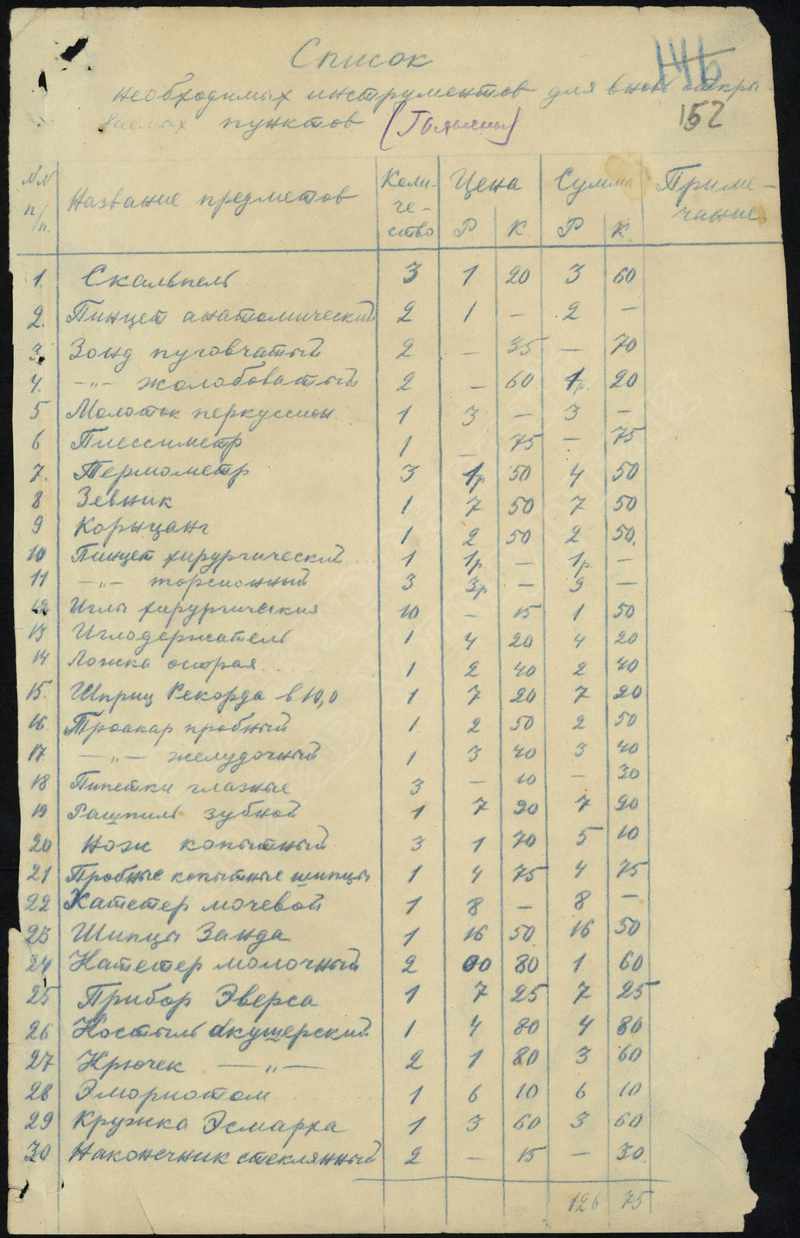 Список
146
необходимых инструментов для вновь откры-
ваемых пунктов
152
№№ п/п. Название предметов Коли-че-ство Цена Р К. Сумма Р К. Приме-чание
1. Скальпель 3 1 20 3 60
2. Пинцет анатомический 2 1 – 2 –
3. Зонд пуговчатый 2 – 35 – 70
4. –"– жолобоватый 2 – 60 1р. 20
5 Молоток перкуссион. 1 3 – 3 –
6 Плессиметр 1 – 75 – 75
7. Термометр 3 1р 50 4 50
8 Зевник 1 7 50 7 50
9 Корнцанг 1 2 50 2 50.
10 Пинцет хирургический 1 1р – 1р –
11 –"– торсионный 3 3р – 9 –
12 Иглы хирургическия 10 – 15 1 50
13 Иглодержатель 1 4 20 4 20
14 Ложка острая 1 2 40 2 40
15. Шприц Рекорда в 10,0 1 7 20 7 20
16. Троакар пробный 1 2 50 2 50
17 –"– желудочный 1 3 40 3 40
18 Пипетки глазные 3 – 10 – 30
19 Рашпиль зубной 1 7 20 7 20
20 Нож копытный 3 1 70 5 10
21 Пробные копытные шипцы 1 4 75 4 75
22 Катетер мочевой 1 8 – 8 –
23 Шипцы Занда 1 16 50 16 50
24 Катетер молочный 2 00 80 1 60
25 Прибор Эверса 1 7 25 7 25
26 Костыль акушерский 1 4 80 4 80
27 Крючек –"– 2 1 80 3 60
28 Эмбриотом 1 6 10 6 10
29 Кружка Эсмарха 1 3 60 3 60
30 Наконечник стеклянный 2 – 15 – 30
126 75